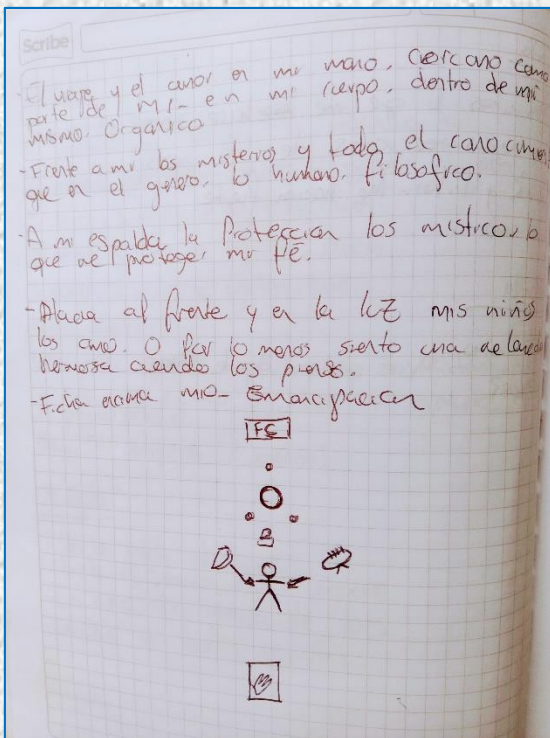 Scribe
- El viaje y el amor en mi mano, cercano como
parte de mi - en mi cuerpo. dentro de mi
mismo. Organico
- Frente a mi los misterios y todo el
que en el genero. lo humano. filosofico.
- A mi espalda la Proteccion los misticos, lo
que me protege, mi fé.
- al frente y en la luz mis niños
los amo. O por lo menos siento una
hermosa cuando los pienso.
- Ficha encima mio - Emancipacion
FE